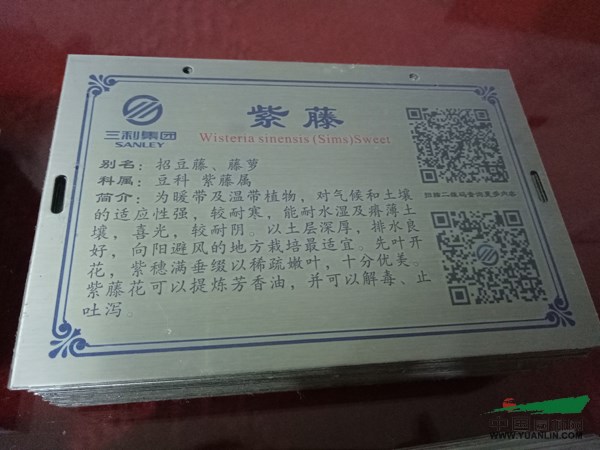 三利集团
SANLEY
紫藤
Wisteria sinensis (Sims)Sweet
别名：招豆藤、藤萝
科属：豆科 紫藤属
简介：为暖带及温带植物，对气候和土壤
的适应性强，较耐寒，能耐水湿及瘠薄土
壤，喜光，较耐阴。以土层深厚，排水良
好，向阳避风的地方栽培最适宜。先叶开
花，紫穗满垂缀以稀疏嫩叶，十分优美。
紫藤花可以提炼芳香油，并可以解毒、止
吐泻。
扫描二维码查询更多内容
WWW.YUANLIN.COM